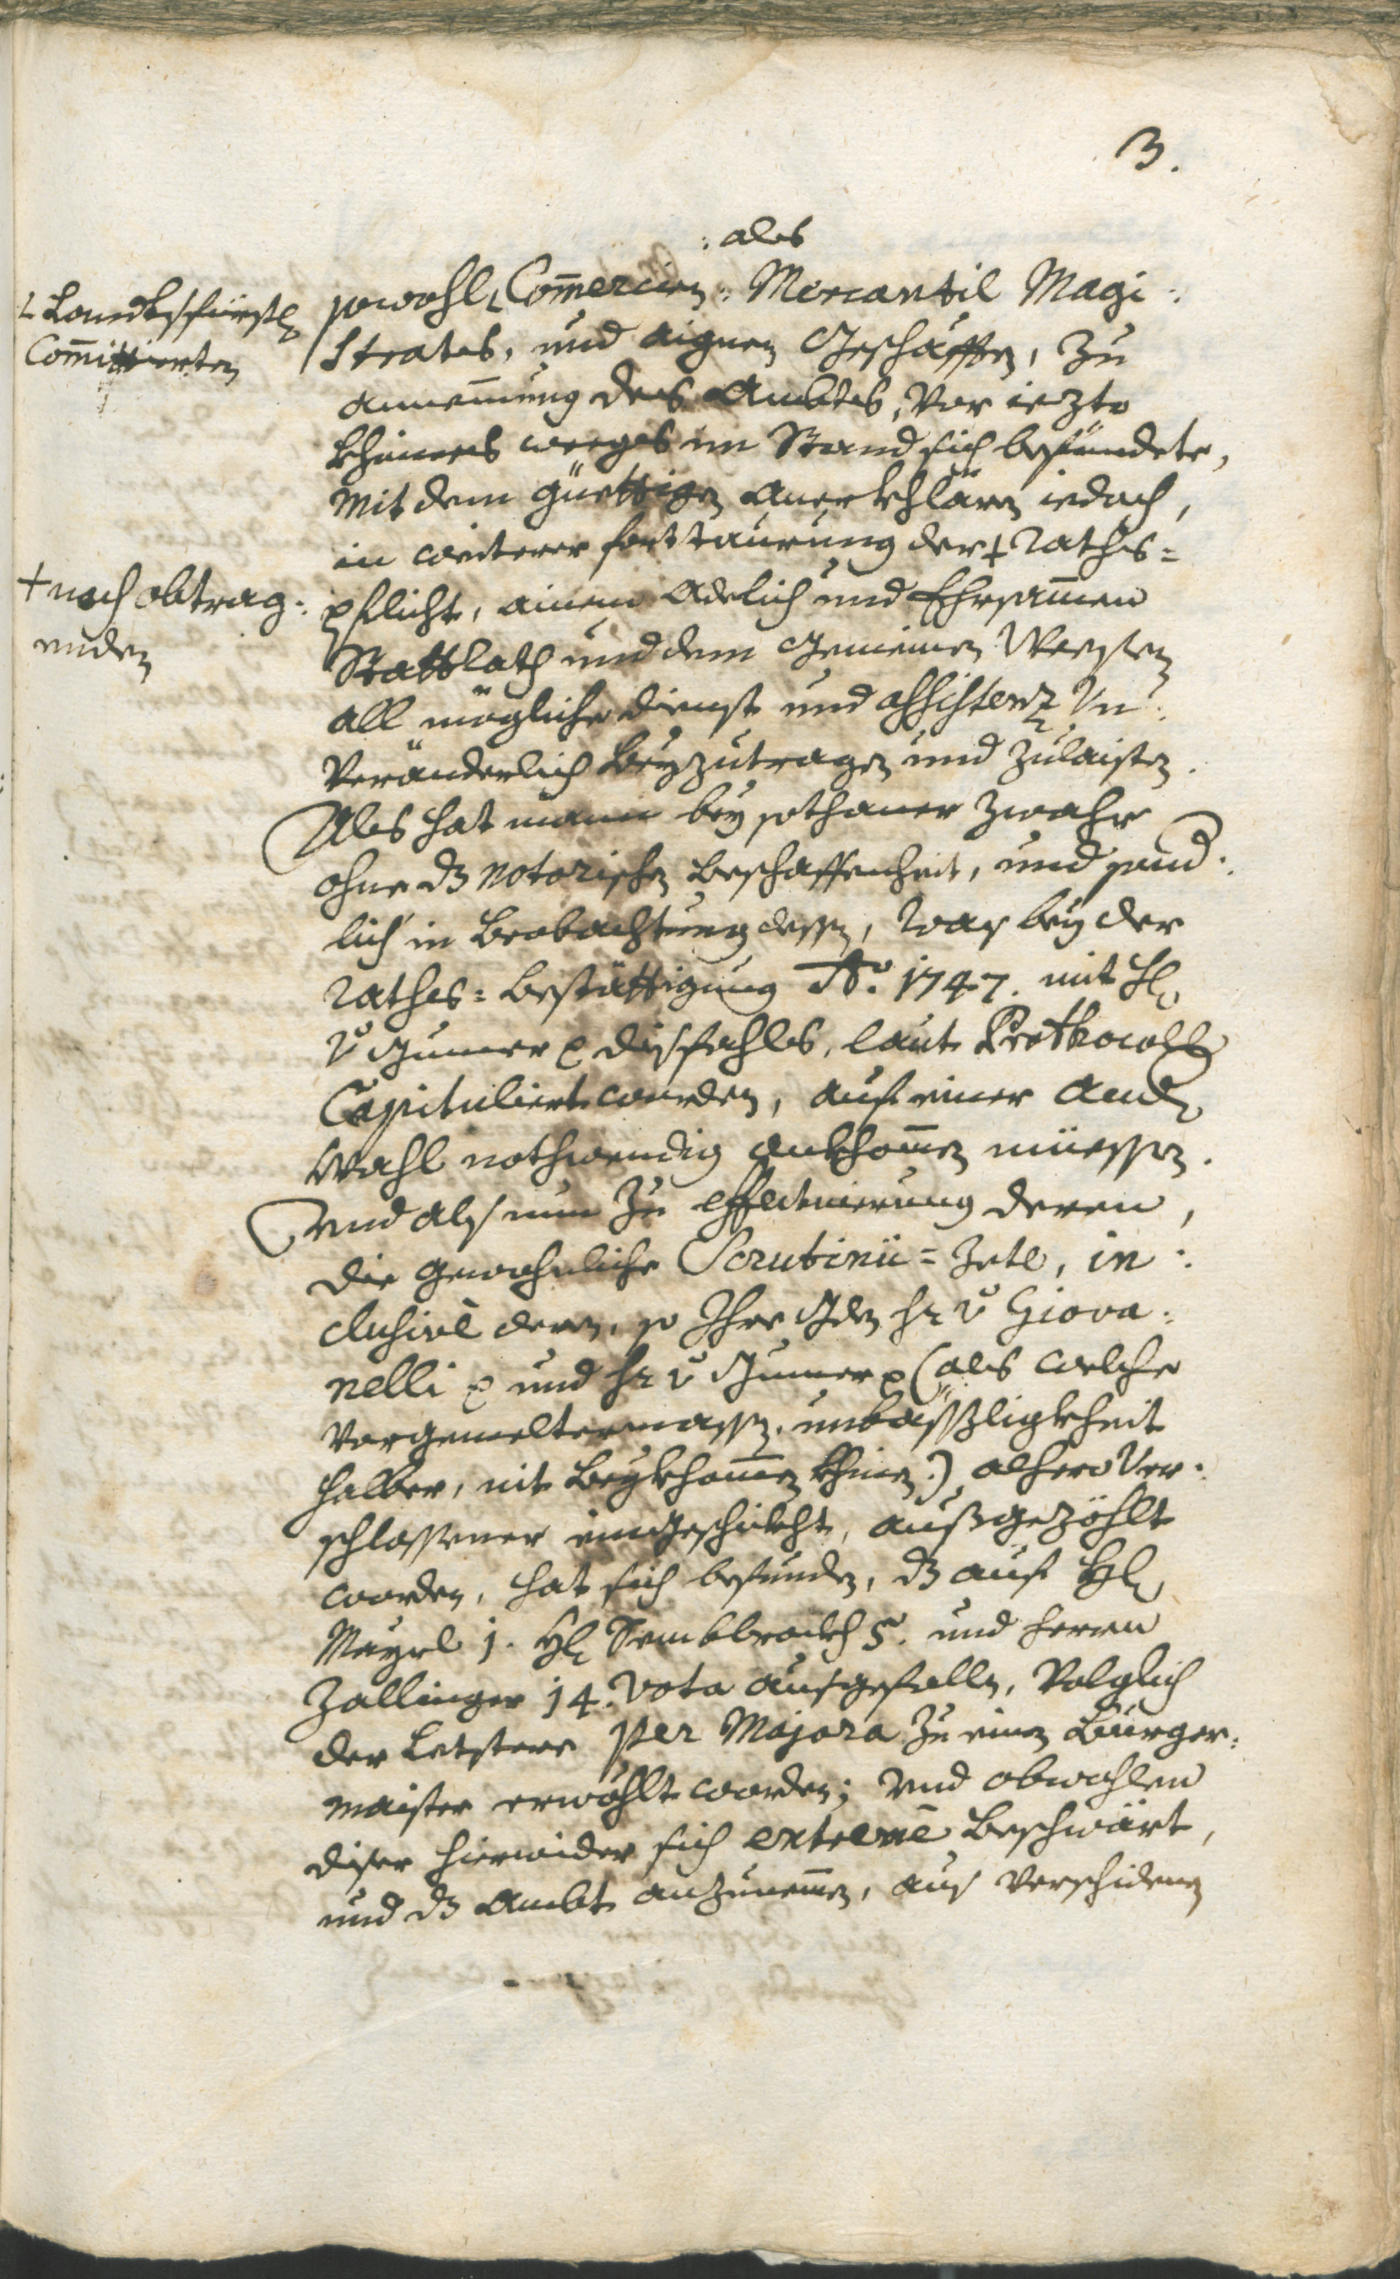 3.
: als
L Landtsfürstl
Com̅ittierten
sowohl L Com̅ercien : Mercantil Magi :
strats, und aignen Geschäfften, zu
annem̅ung des Ambts, vor iezto
kheines weegs im Stand sich befündete,
mit dem güettigen anerkhlären iedoch,
in weiterer forttaurung der + Raths =
+ nach obtrag :
enden
pflicht, ainem Adelich und Ehrsam̅en
Stattrath und dem Gemeinen Weesen
all mögliche dienst und assistenz Un :
veränderlich beyzutragen und zulaisten.
Als hat mann bey sothaner zwahr
ohne dz notorischen beschaffenheit, und
lich in beobachtung dessen, was bey der
Raths = bestättigung Aō. 1747. mit H
v Gumer p disfahls, laut Prothocolls
Capituliert worden, auf einer and
Wahl nothwendig ankhom̅en müessen.
Und als nun zu effectuierung deren,
die gewohnliche Scrutinii = Zetl, in :
clusivè deren, so Ihre Gden Hr v Giova :
nelli p und Hr v Gumer p (als welche
vorgemeltermassen, unbässzligkheit
halber, nit beykhom̅en khinen:) alhero ver :
schlossener eingeschickht, außgezöhlt
worden, hat sich befunden, dz auf H
Mayrl 1. H 5. und Herrn
Zallinger 14. vota ausgefallen, volglich
der letstere per Majora zu einen Burger :
maister erwöhlt worden; und obwohlen
diser hierwider sich extremè beschwärt,
und dz Ambt anzunem̅en, aus verschidenen